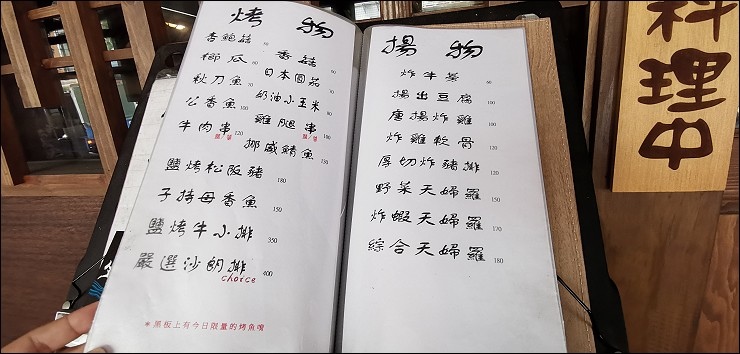 烤物
杏鮑菇
香菇 90
椰瓜
日本圓茄
秋刀魚 70
奶油小玉米 90
公香魚 100
雞腿串 100
鹽/醬
牛肉串 120
鹽/醬
挪威鯖魚 150
鹽烤松阪豬 180
子持母香魚 150
鹽烤牛小排 350
嚴選沙朗排 400
choice
*黑板上有今日限量的烤魚唷
揚物
炸牛蒡 60
揚出豆腐 100
唐揚炸雞 100
炸雞軟骨 100
厚切炸豬排 120
野菜天婦羅 150
炸蝦天婦羅 170
綜合天婦羅 180
料理中